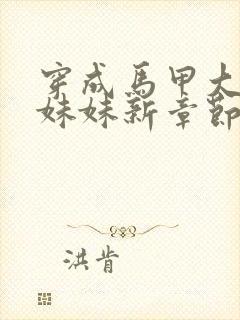 穿成馬甲大
妹妹新章節
洪肯